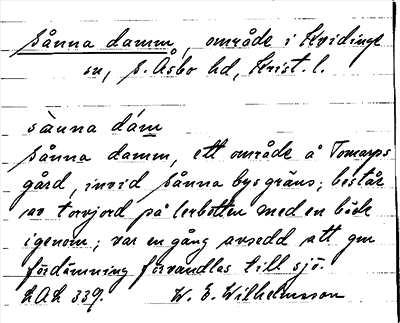 Sånna damm, område i Kvidinge
sn, S. Åsbo hd, Krist. l.
sånna dám
Sånna damm, ett område å Tomarps
gård, invid Sånna bys gräns; består
av torvjord på lerbotten med en bäck
igenom; var en gång avsedd att gm
fördämning förvandlas till sjö.
LAL 339. W. E. Wilhelmsson